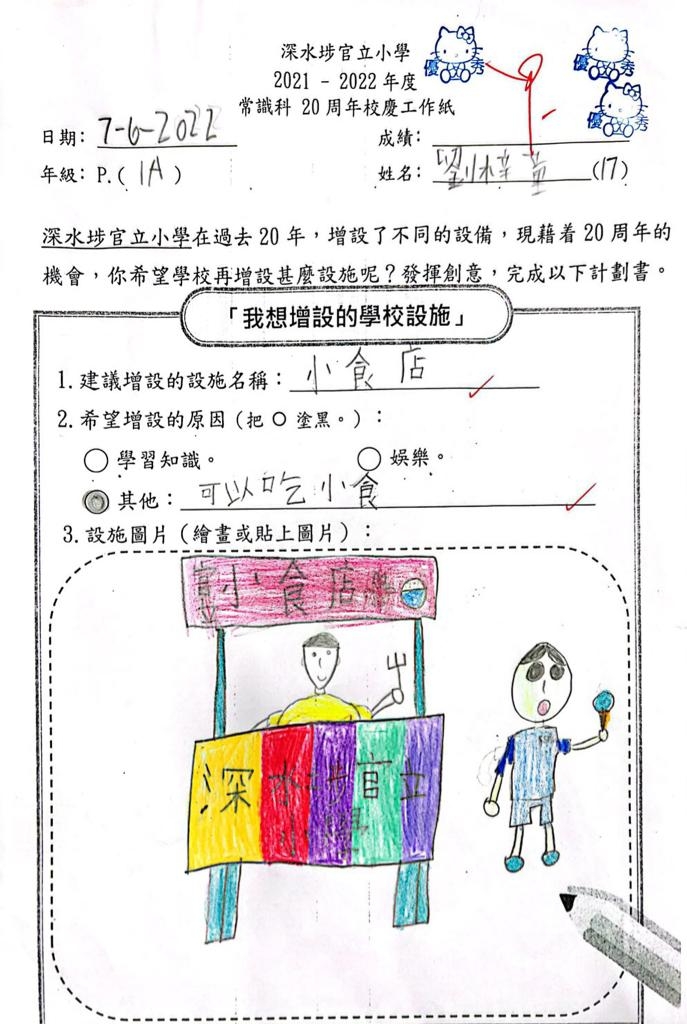 深水埗官立小學
2021 - 2022 年度
常識科 20 周年校慶工作紙
優 秀
優 秀
優 秀
日期: 7-6-2022
成績:
年級: P.( 1A )
姓名: 劉梓童 (17)
深水埗官立小學在過去 20 年，增設了不同的設備，現藉着 20 周年的
機會，你希望學校再增設甚麼設施呢？發揮創意，完成以下計劃書。
「我想增設的學校設施」
1. 建議增設的設施名稱： 小食店
2. 希望增設的原因（把 O 塗黑。）：
學習知識。 娛樂。
其他： 可以吃小食
3. 設施圖片（繪畫或貼上圖片）：
小食店
深水埗官立
小學